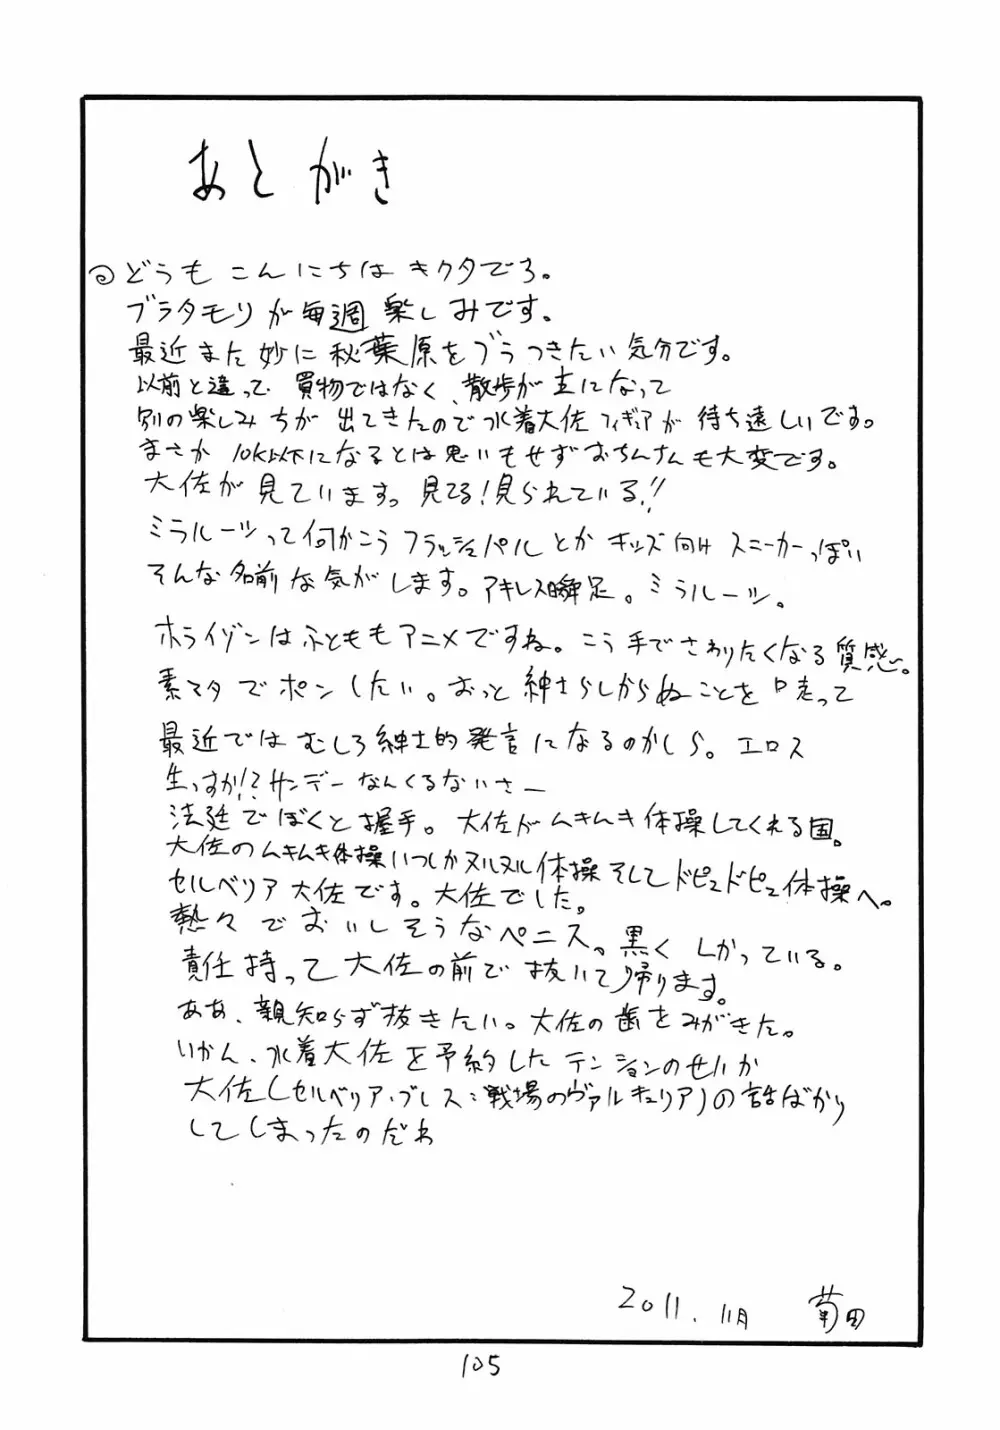 あとがき
どうもこんにちはキクタでろ。
ブラタモリが毎週楽しみです。
最近また妙に秋葉原をブラつきたい気分です。
以前と違って買物ではなく、散歩が主になって
別の楽しみ方が出てきたので水着大佐フィギュアが待ち遠しいです。
まさか10K以下になるとは思いもせずおちんさんも大変です。
大佐が見ています。見てる!見られている!!
ミラルーツって何かこうフラッシュパルとかキッズ向けスニーカーっぽい
そんな名前な気がします。アキレス瞬足。ミラルーツ。
ホライゾンはふとももアニメですね。こう手でさわりたくなる質感。
素マタでポンしたい。おっと紳士らしからぬことを口走って
最近ではむしろ紳士的発言になるのかしら。エロス
生っすか!?サンデーなんくるないさー
法廷でぼくと握手。大佐がムキムキ体操してくれる国。
大佐のムキムキ体操いつしかヌルヌル体操そしてドピュドピュ体操へ。
セルベリア大佐です。大佐でした。
熱々でおいしそうなペニス。黒くしかっている。
責任持って大佐の前で抜いて帰ります。
ああ、親知らず抜きたい。大佐の歯をみがきた。
いかん、水着大佐を予約したテンションのせいか
大佐(セルベリア・ブレス:戦場のヴァルキュリア)の話ばかり
してしまったのだわ
2011.11月 菊田
105